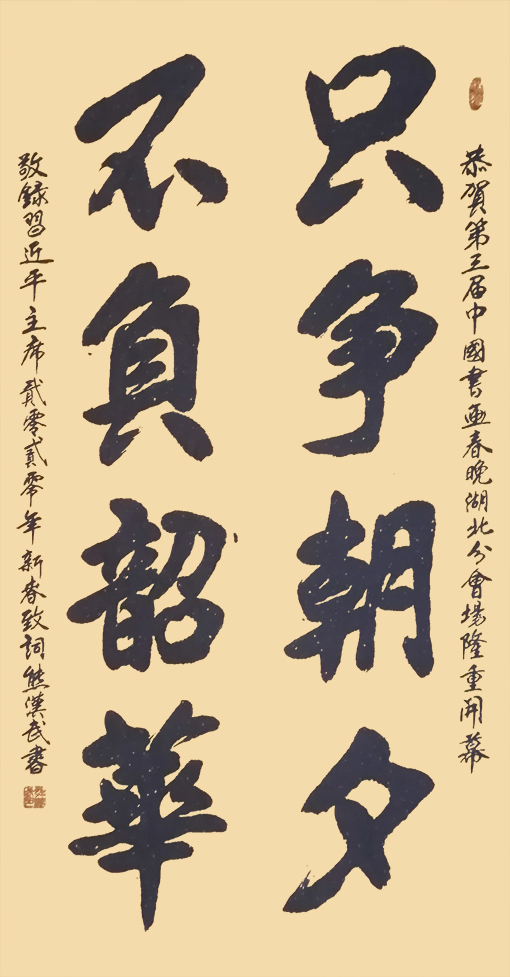 恭賀第三届中國書画春晚湖北分會場隆重開幕
只争朝夕
不負韶華
敬録習近平主席貳零貳零年新春致詞熊漢民書